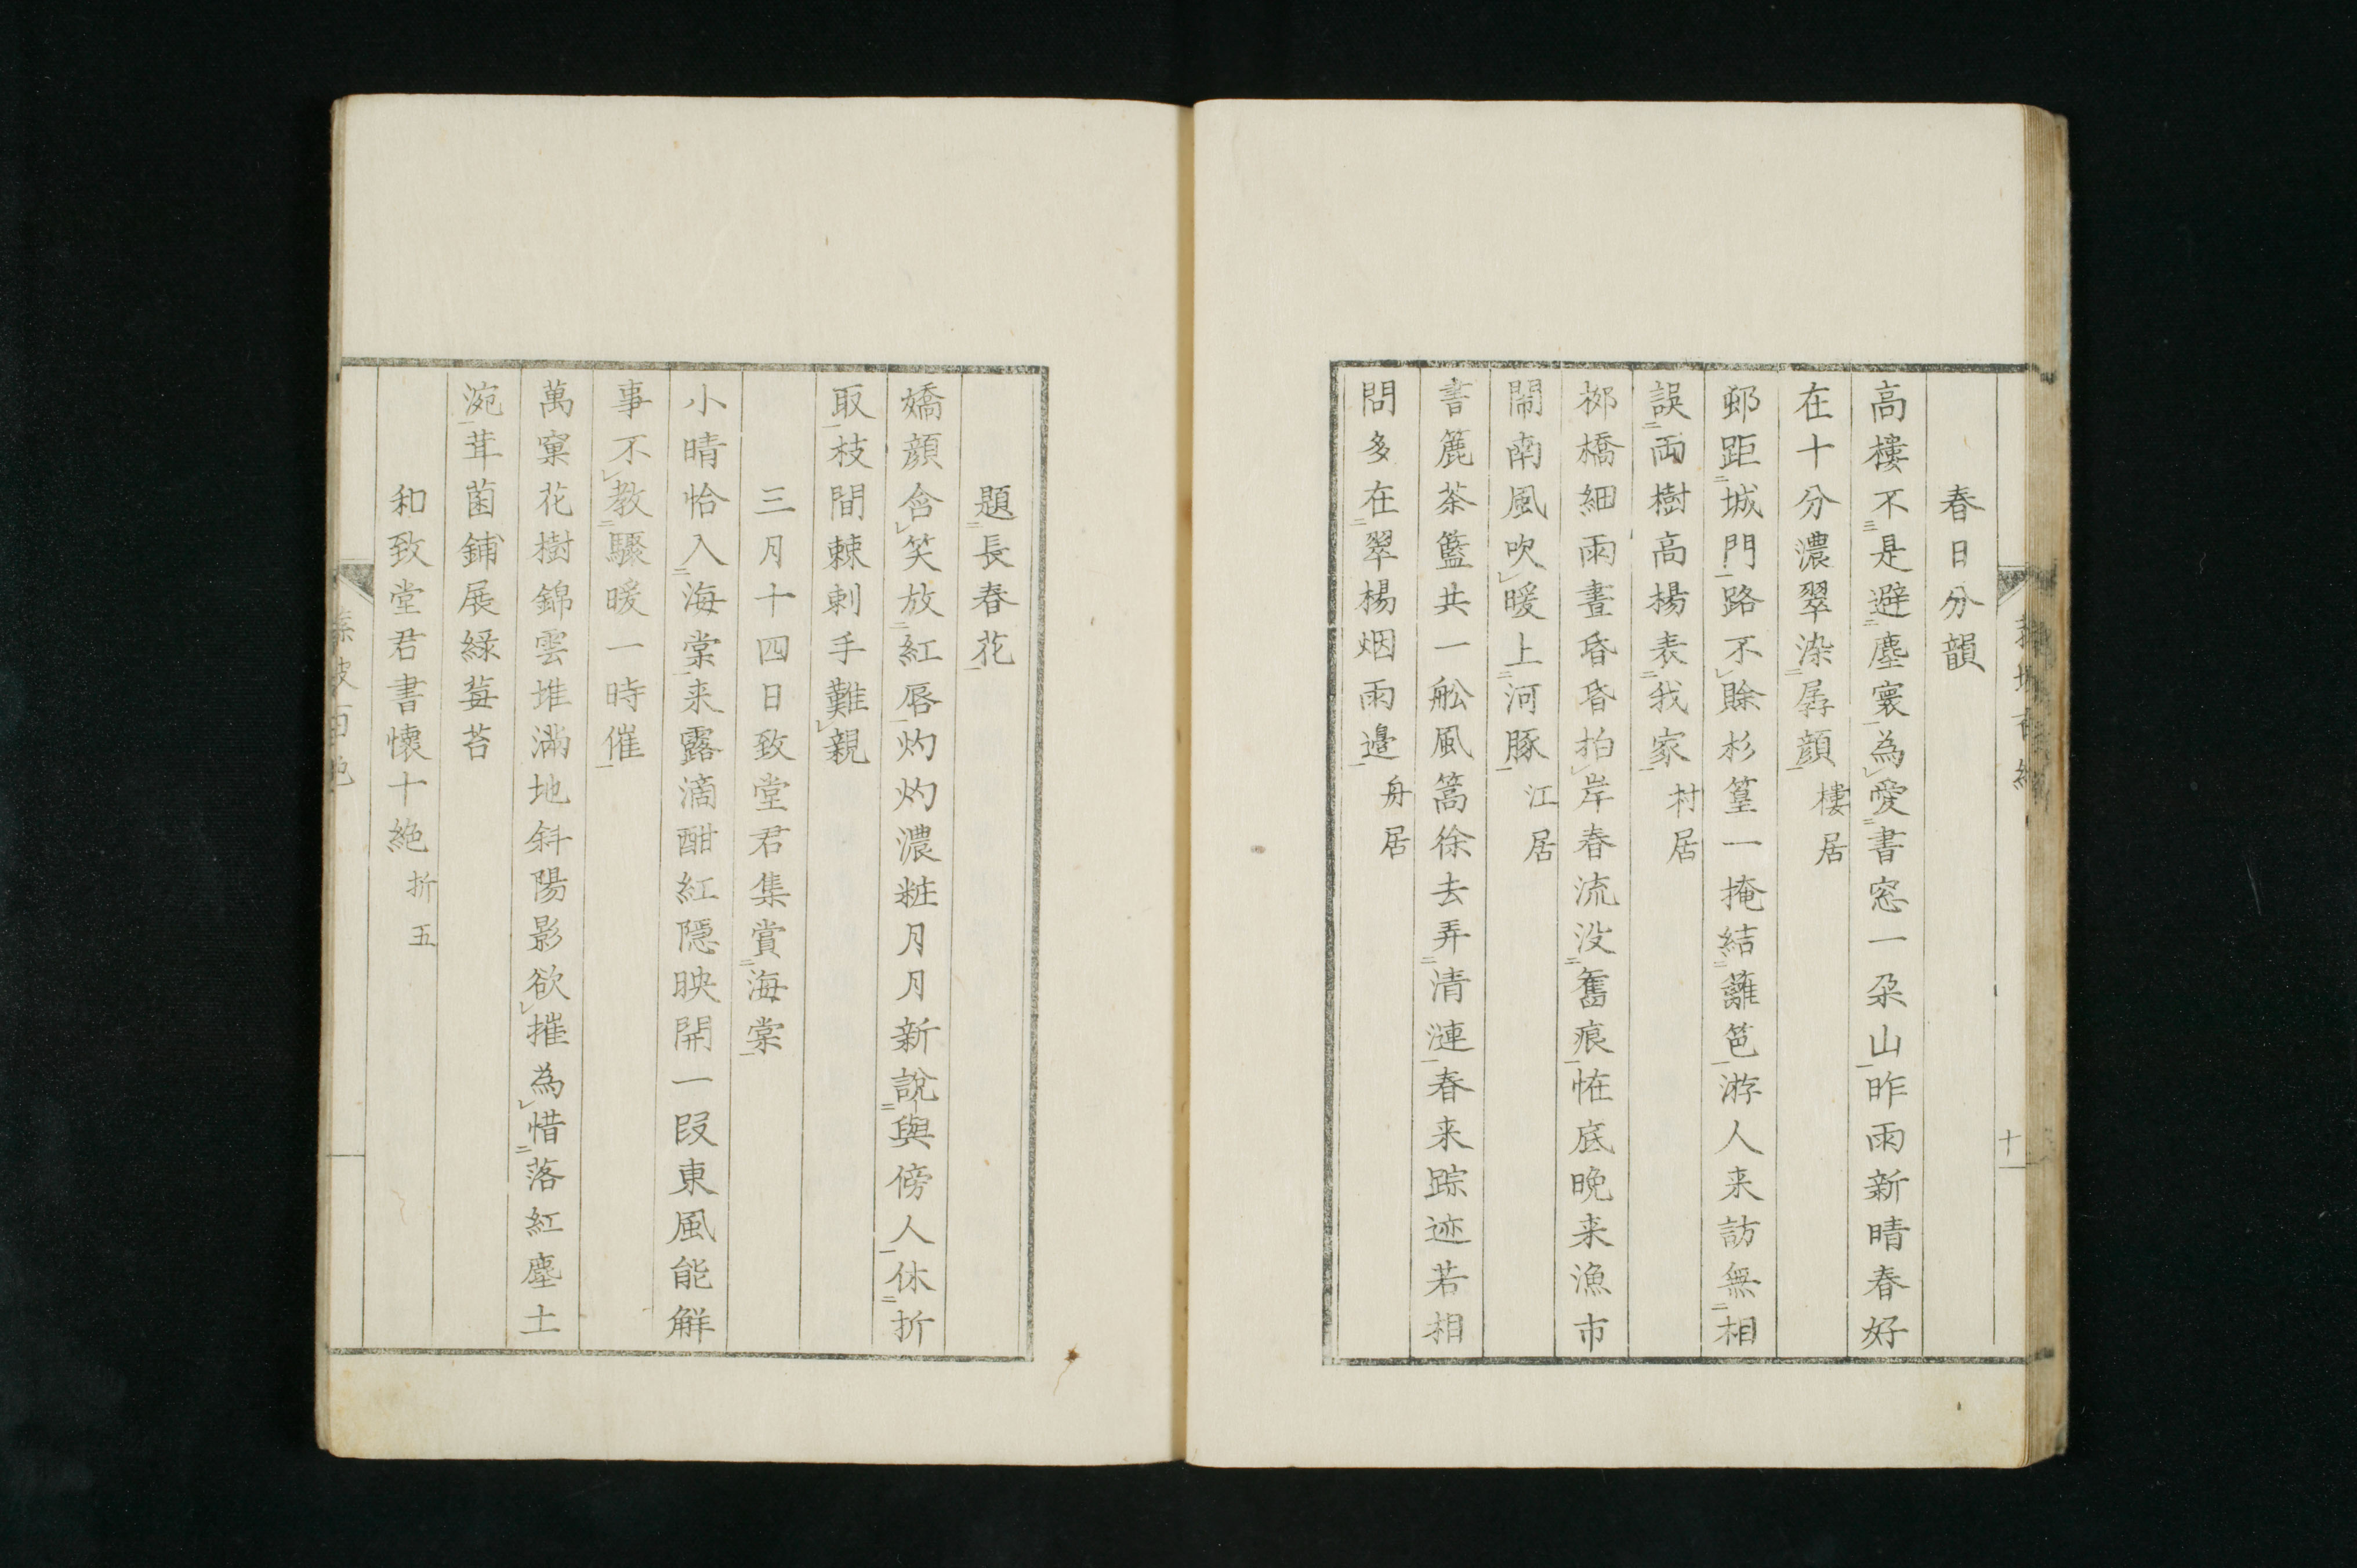 十一
春日分韻
高樓不是避塵寰為愛書窓一朶山昨雨新晴春好
在十分濃翠染孱顔 樓居
邨距城門路不賖杉篁一掩結籬笆游人来訪無相
誤両樹高楊表我家 村居
桞橋細雨晝昏昏拍岸春流没舊痕恠底晩来漁市
閙南風吹暖上河豚 江居
書簏茶籃共一舩風篙徐去弄清漣春来踪迹若相
問多在翠楊烟雨邉 舟居
題長春花
嬌顔含笑放紅唇灼灼濃粧月月新說與傍人休折
取枝間棘刺手難親
三月十四日致堂君集賞海棠
小晴恰入海棠来露滴酣紅隠映開一段東風能觧
事不教驟暖一時催
萬窠花樹錦雲堆滿地斜陽影欲摧為惜落紅塵土
涴茸茵鋪展緑莓苔
和致堂君書懷十絶 折五
百絶